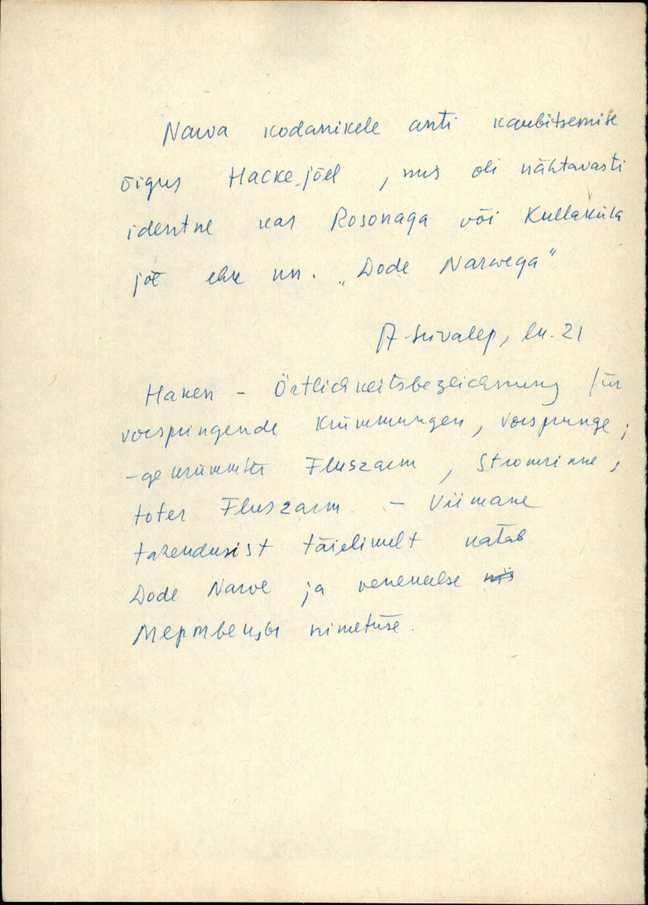 Narva kodanikele anti kaubitsemise
õigus Hacke jõel, mis oli nähtavasti
identne kas Rosonaga või Kullaküla
jõe ehk nn. „Dode Narwega"
A. Soivalep, lk. 21
Haken – Örtlichkeitsbezeichnung für
vorspringende Krümmungen, Vorsprunge;
- gekrümmter Fluszarm, Stromrinne,
toter Fluszarm. – Viimane
tähendusist täielikult katab
Dode Narve ja venekeelse
Мертвецы nimetuse.